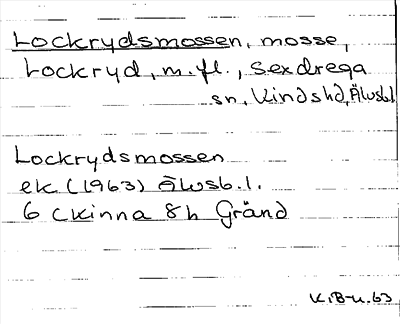 Lockrydsmossen, mosse,
Lockryd, m.fl., Sexdrega
sn, Kinds hd, Älvsb.l
Lockrydsmossen
ek. (1963) Älvsb.l.
6 C Kinna 8h Gränd
K.B-u. 63